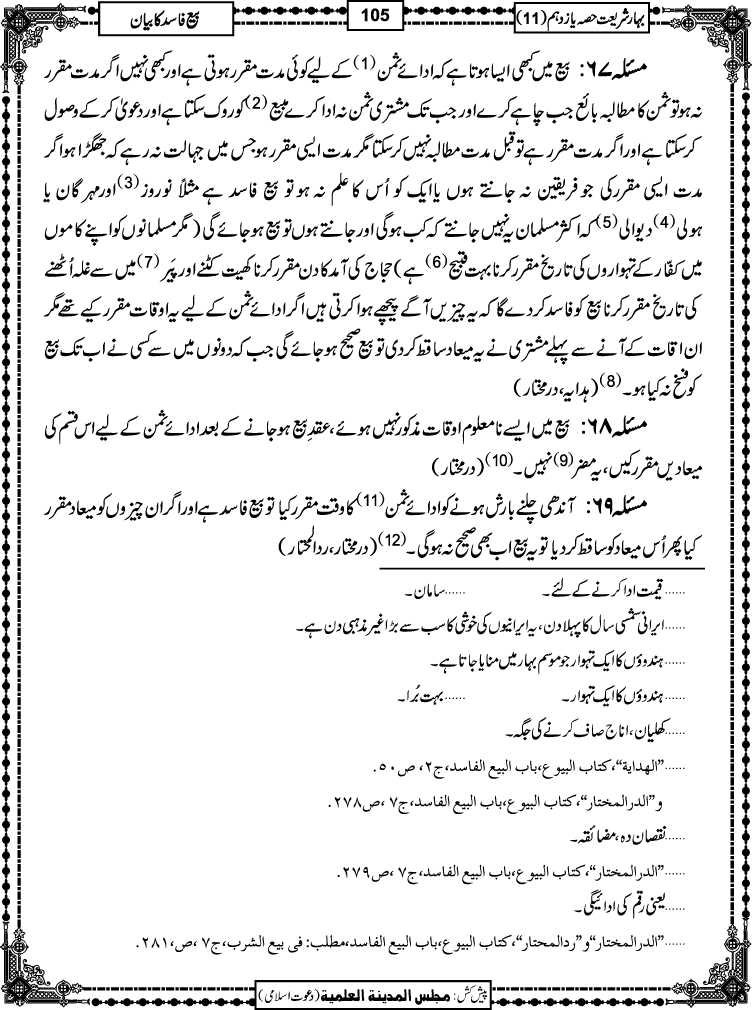 بہار شریعت حصہ یازدہم (11)
105
بیع فاسد کا بیان
مسئلہ ۶۷: بیع میں کبھی ایسا ہوتا ہے کہ ادائے ثمن (1) کے لیے کوئی مدت مقرر ہوتی ہے اور کبھی نہیں اگر مدت مقرر
نہ ہو تو ثمن کا مطالبہ بائع جب چاہے کرے اور جب تک مشتری ثمن نہ ادا کرے مبیع (2) کو روک سکتا ہے اور دعویٰ کر کے وصول
کر سکتا ہے اور اگر مدت مقرر ہے تو قبل مدت مطالبہ نہیں کر سکتا مگر مدت ایسی مقرر ہو جس میں جہالت نہ رہے کہ جھگڑا ہو اگر
مدت ایسی مقرر کی جو فریقین نہ جانتے ہوں یا ایک کو اُس کا علم نہ ہو تو بیع فاسد ہے مثلاً نوروز (3) اور مہرگان یا
ہولی (4) دیوالی (5) کہ اکثر مسلمان یہ نہیں جانتے کہ کب ہوگی اور جانتے ہوں تو بیع ہو جائے گی (مگر مسلمانوں کو اپنے کاموں
میں کفّار کے تہواروں کی تاریخ مقرر کرنا بہت قبیح (6) ہے) حجاج کی آمد کا دن مقرر کرنا کھیت کٹنے اور پَیر (7) میں سے غلہ اُٹھنے
کی تاریخ مقرر کرنا بیع کو فاسد کر دے گا کہ یہ چیزیں آگے پیچھے ہوا کرتی ہیں اگر ادائے ثمن کے لیے یہ اوقات مقرر کیے تھے مگر
ان اوقات کے آنے سے پہلے مشتری نے یہ میعاد ساقط کر دی تو بیع صحیح ہو جائے گی جب کہ دونوں میں سے کسی نے اب تک بیع
کو فسخ نہ کیا ہو۔ (8) (ہدایہ، درمختار)
مسئلہ ۶۸: بیع میں ایسے نامعلوم اوقات مذکور نہیں ہوئے، عقدِ بیع ہو جانے کے بعد ادائے ثمن کے لیے اس قسم کی
میعادیں مقرر کیں، یہ مضر (9) نہیں۔ (10) (درمختار)
مسئلہ ۶۹: آندھی چلنے بارش ہونے کو ادائے ثمن (11) کا وقت مقرر کیا تو بیع فاسد ہے اور اگر ان چیزوں کو میعاد مقرر
کیا پھر اُس میعاد کو ساقط کر دیا تو یہ بیع اب بھی صحیح نہ ہوگی۔ (12) (درمختار، ردالمحتار)
......قیمت ادا کرنے کے لئے۔ ......سامان۔
......ایرانی شمسی سال کا پہلا دن، یہ ایرانیوں کی خوشی کا سب سے بڑا غیر مذہبی دن ہے۔
......ہندوؤں کا ایک تہوار جو موسم بہار میں منایا جاتا ہے۔
......ہندوؤں کا ایک تہوار۔ ......بہت بُرا۔
......کھلیان، اناج صاف کرنے کی جگہ۔
......”الهداية“، كتاب البيوع، باب البيع الفاسد، ج٢، ص ٥٠.
و ”الدرالمختار“، كتاب البيوع، باب البيع الفاسد، ج٧، ص٢٧٨.
......نقصان دہ، مضائقہ۔
......”الدرالمختار“، كتاب البيوع، باب البيع الفاسد، ج٧، ص٢٧٩.
......یعنی رقم کی ادائیگی۔
......”الدرالمختار“ و ”ردالمحتار“، كتاب البيوع، باب البيع الفاسد، مطلب: فى بيع الشرب، ج٧، ص، ٢٨١.
پیش کش: مجلس المدینة العلمیة (دعوت اسلامی)